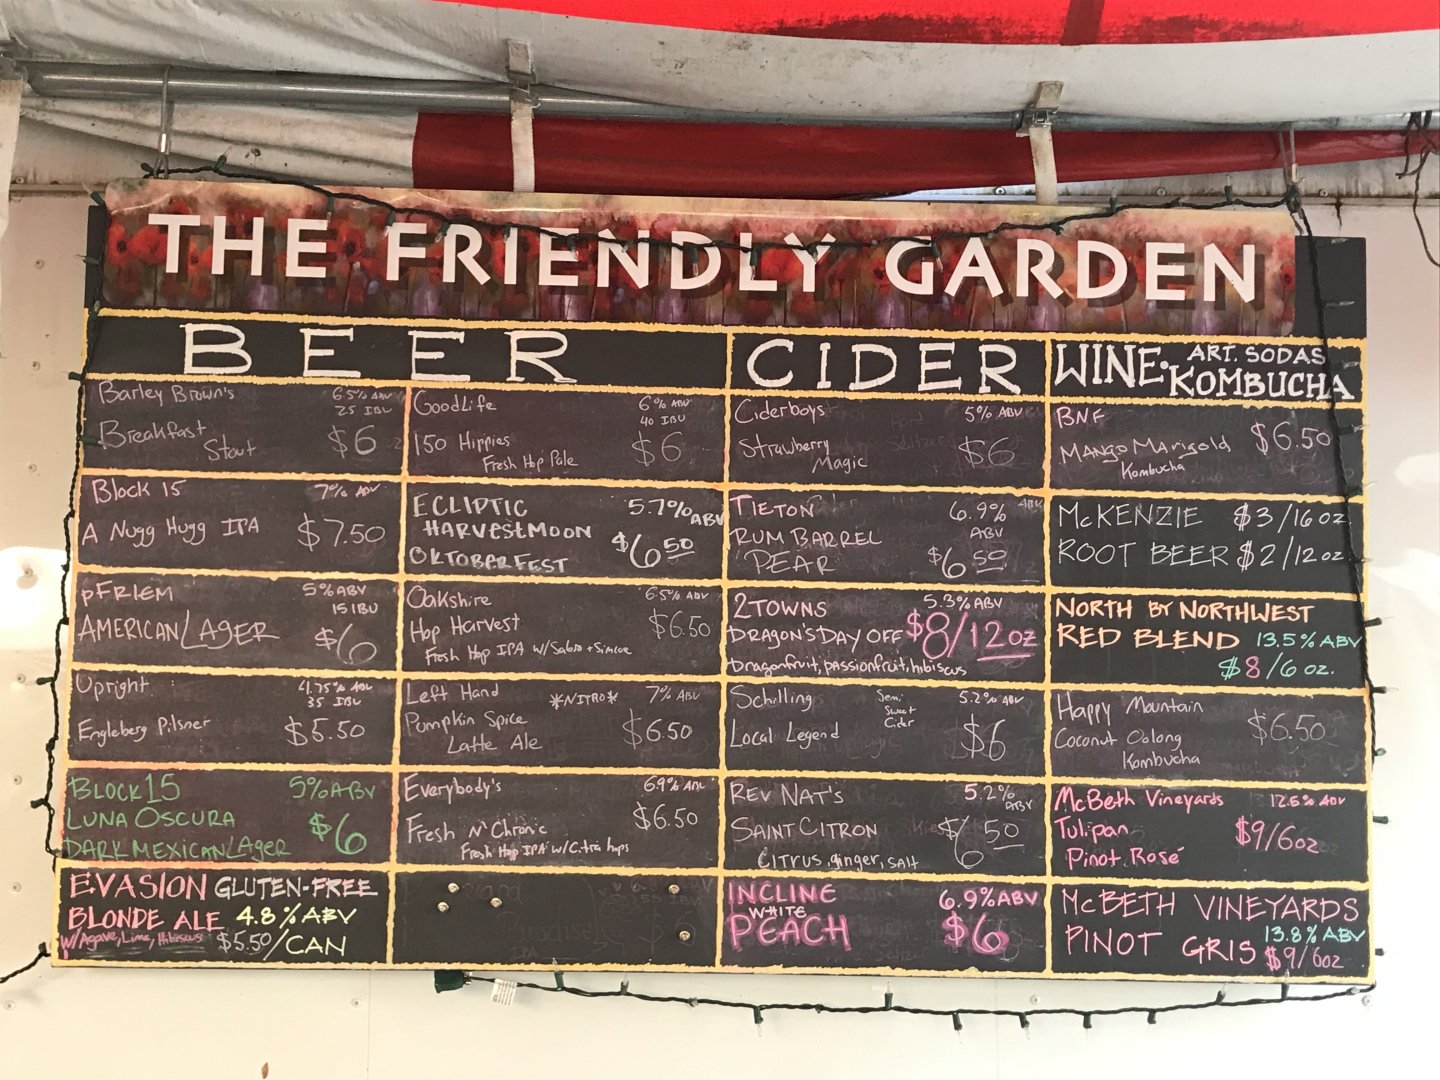 THE FRIENDLY GARDEN
BEER
Barley Brown's 6.5% ABV
25 IBU
Breakfast
Stout $6
Block 15 7% ABV
A Nugg Hugg IPA $7.50
pFRIEM 5% ABV
15 IBU
AMERICAN LAGER $6
Upright 4.75% ABV
35 IBU
Engleberg Pilsner $5.50
BLOCK 15 5% ABV
LUNA OSCURA $6
DARK MEXICAN LAGER
EVASION GLUTEN-FREE
BLONDE ALE 4.8% ABV
W/Agave, Lime, Hibiscus $5.50/CAN
GoodLife 6% ABV
40 IBU
150 Hippies $6
Fresh Hop Pale
ECLIPTIC 5.7% ABV
HARVEST MOON $6.50
OKTOBERFEST
Oakshire 6.5% ABV
Hop Harvest $6.50
Fresh Hop IPA w/Sabro + Simcoe
Left Hand *NITRO* 7% ABV
Pumpkin Spice $6.50
Latte Ale
Everybody's 6.9% ABV
$6.50
Fresh N' Chronic
Fresh Hop IPA w/Citra hops
CIDER
Ciderboys 5% ABV
Strawberry $6
Magic
TIETON 6.9%
ABV
RUM BARREL
PEAR $6.50
2TOWNS 5.3% ABV
DRAGON'S DAY OFF $8/12oz
Dragonfruit, passionfruit, hibiscus
Schilling Semi 5.2% ABV
Sweet
Cider
Local Legend $6
REV NAT'S 5.2%
ABV
SAINT CITRON $6.50
CITRUS, ginger, SALT
INCLINE 6.9% ABV
WHITE
PEACH $6
WINE. ART. SODAS
KOMBUCHA
BNF $6.50
Mango Marigold
Kombucha
McKENZIE $3/16oz
ROOT BEER $2/12oz
NORTH BY NORTHWEST
RED BLEND 13.5% ABV
$8/6 oz.
Happy Mountain $6.50
Coconut Oolong
Kombucha
McBeth Vineyards 12.6% ABV
Tulipan $9/6oz
Pinot Rosé
McBETH VINEYARDS
13.8% ABV
PINOT GRIS $9/6oz